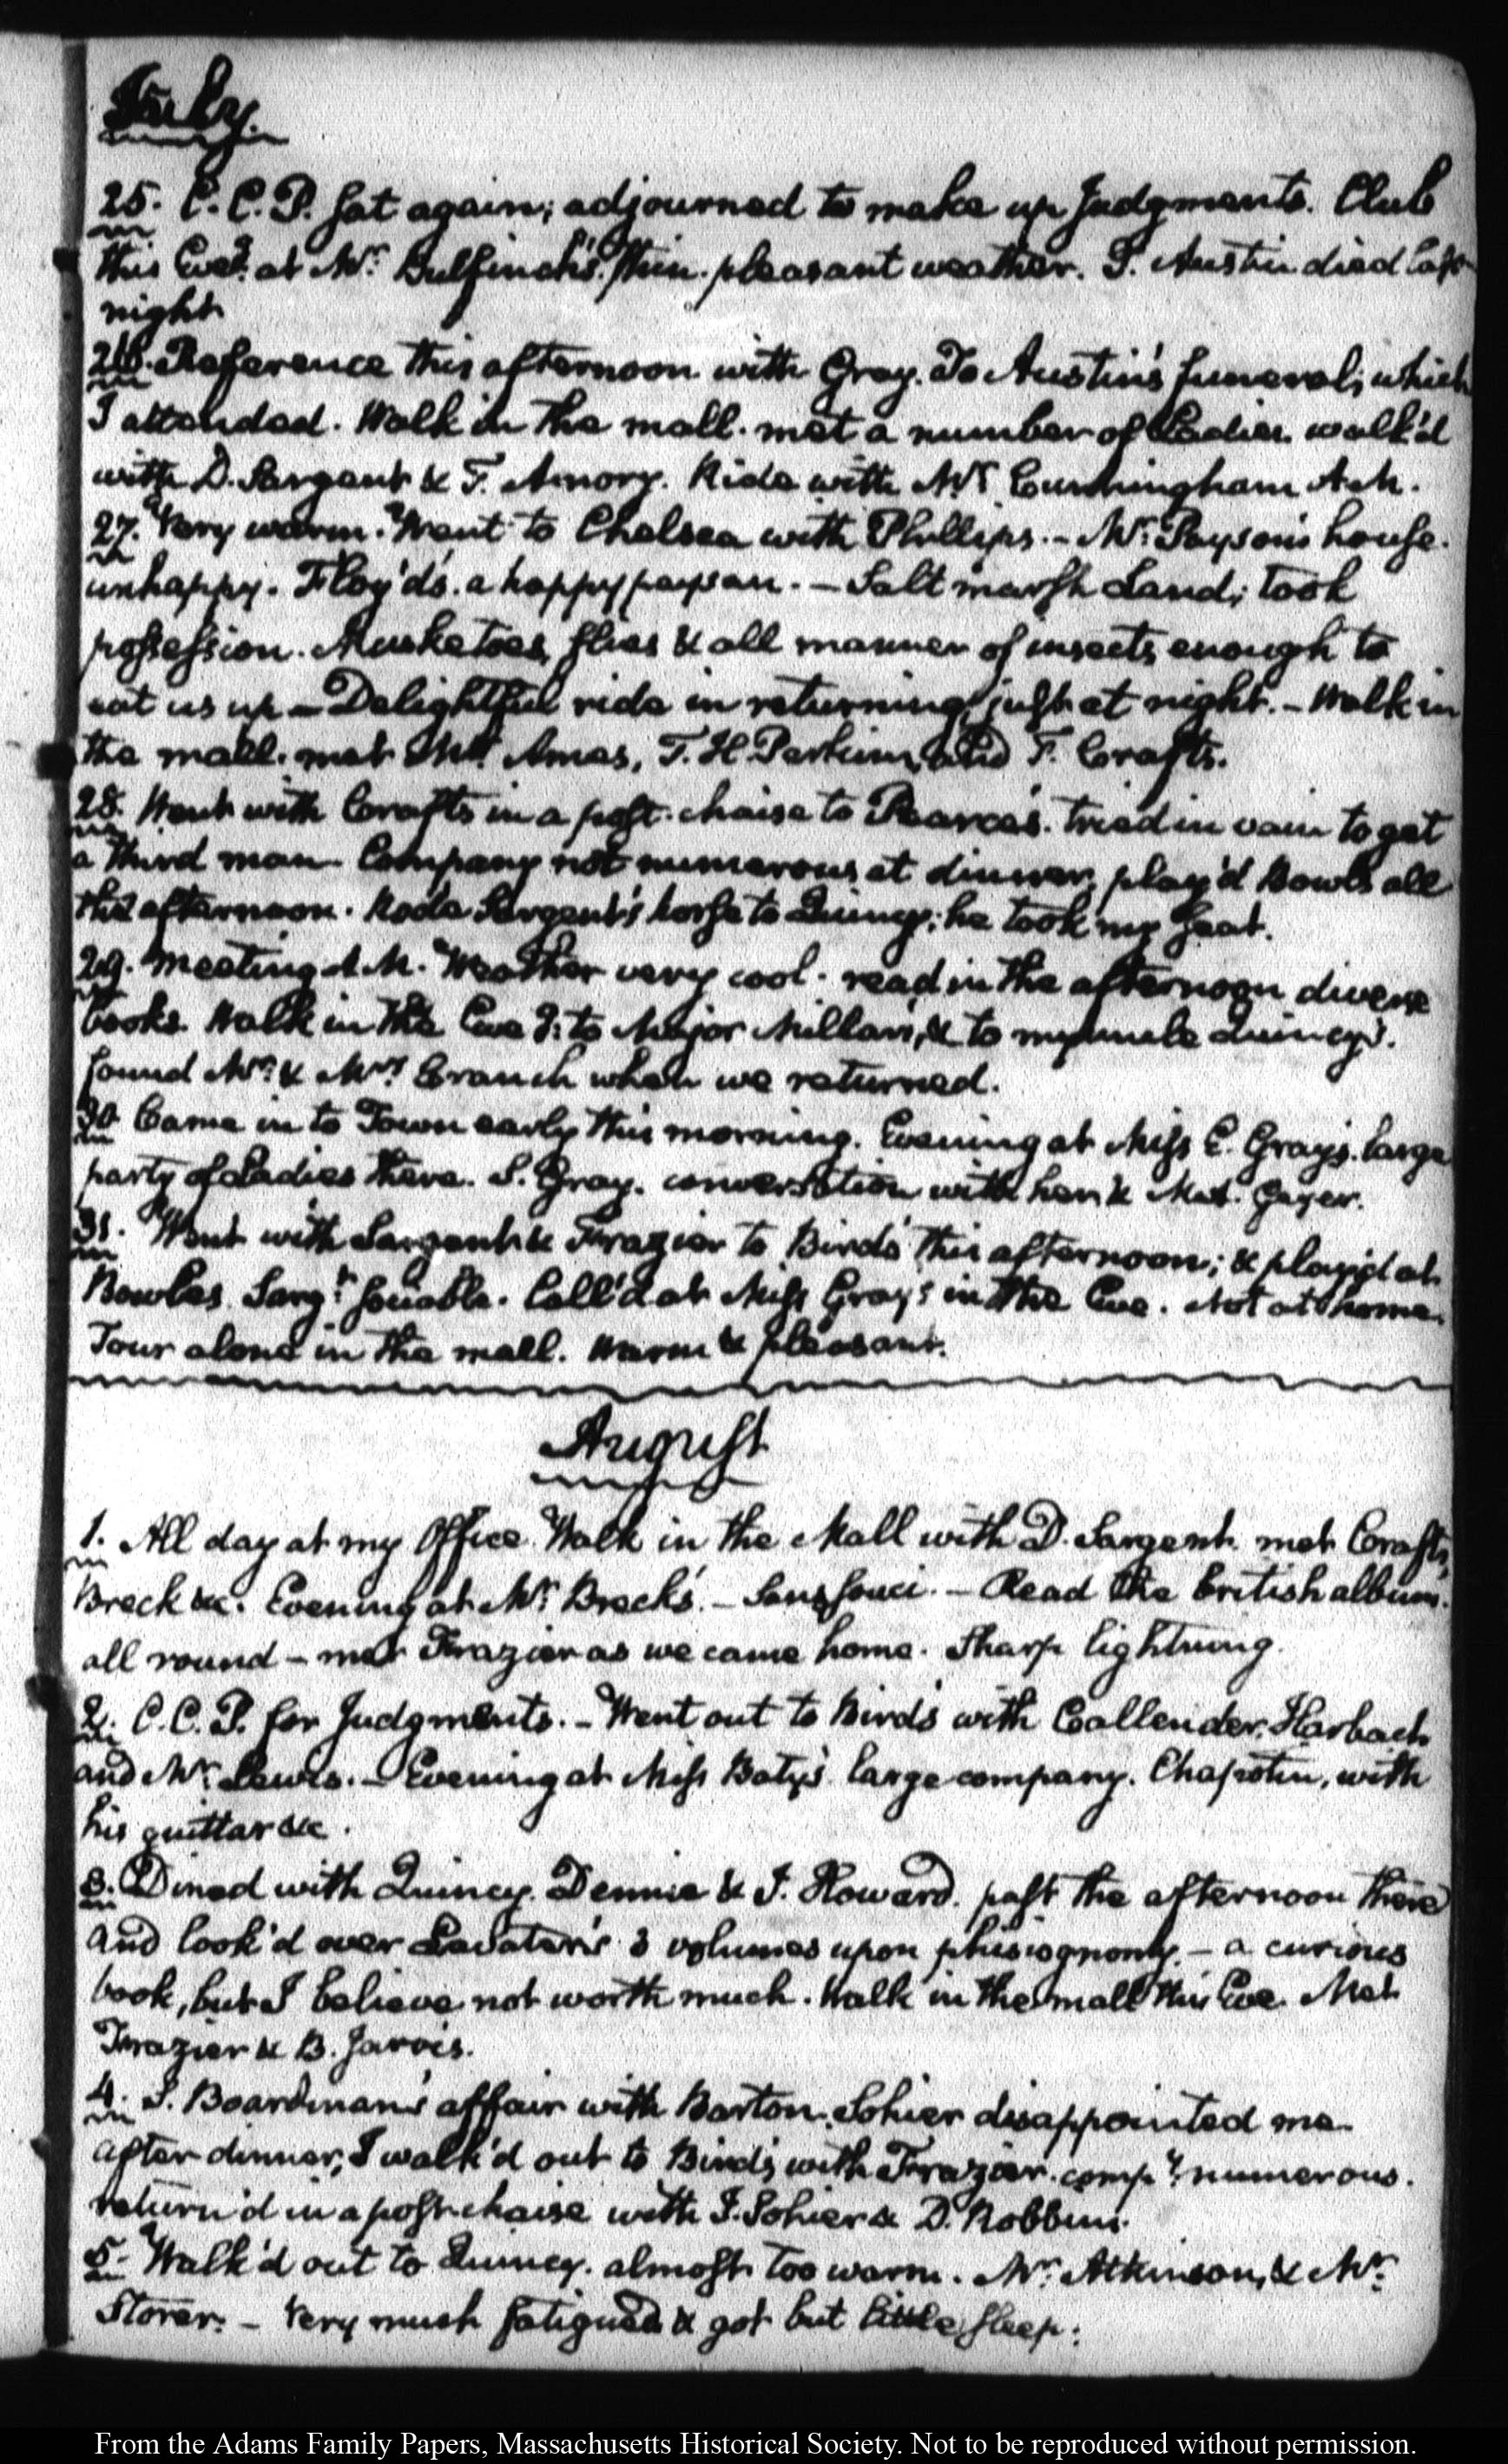 July.
25. C.C.P. sat again; adjourned to make up Judgments. Club
this Eveg. at Mr. Bulfinch's. thin. pleasant weather. S. Austin died last
night
26. Reference this afternoon with Gray. To Austin's funeral; which
I attended. Walk in the mall. met a number of Ladies. walk'd
with D. Sargent & F. Amory. Ride with Mr. Cunningham A.M.
27. Very warm. Went to Chelsea with Phillips. – Mr. Payson's house.
unhappy. Floyd's. a happy paysan. – Salt marsh Land; took
possession. Musketoes, flies & all manner of insects enough to
eat us up – Delightful ride in returning, just at night. – Walk in
the mall. met Ames, T. H. Perkins, and F. Crafts.
28. Went with Crafts in a post-chaise to Pearce's. tried in vain to get
a third man. Company not numerous at dinner, play'd Bowls all
the afternoon. Rode Sargent's horse to Quincy; he took my seat.
29. Meeting A.M. Weather very cool. read in the afternoon diverse
books. Walk in the Eveg. to Major Miller's, & to my uncle Quincy's.
found Mr. & Mrs. Cranch when we returned.
30 Came in to Town early this morning. Evening at Miss E. Gray's. large
party of Ladies there. S. Gray. conversation with her & M. Geyer.
31. Went with Sargent & Frazier to Bird's this afternoon; & play'd at
Bowles. Sargt. sociable. Call'd at Miss Gray's in the Eve. Not at home.
Tour alone in the mall. Warm & pleasant.
August
1. All day at my Office. Walk in the Mall with D. Sargent. met Crafts,
Breck &c. Evening at Mr. Breck's. – Sans souci. – Read the British album.
all round – met Frazier as we came home. Sharp lightning.
2. C.C.P. for Judgments. – Went out to Bird's with Callender, Harbach
and Mr. Lewis. – Evening at Miss Baty's large company. Chapotin, with
his guittar &c.
3. Dined with Quincy. Dennie & J. Howard. past the afternoon there
and look'd over Lavater's 3 volumes upon phisiognomy. – a curious
book, but I believe not worth much. Walk in the mall this Eve. Met
Frazier & B. Jarvis.
4. S. Boardman's affair with Barton. Sohier disappointed me.
after dinner, I walk'd out to Bird's with Frazier. compy. numerous.
return'd in a post-chaise with J. Sohier & D. Robbins.
5. Walk'd out to Quincy. almost too warm. Mr. Atkinson, & Mr.
Storer. – Very much fatigued & got but little sleep.
From the Adams Family Papers, Massachusetts Historical Society. Not to be reproduced without permission.